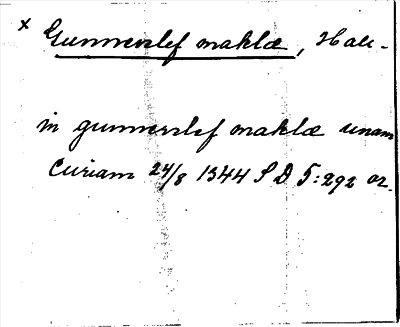 x Gunnerslef maklæ, Hall-
in gunnerslef maklæ unam
Curiam 24/8 1344 S D 5:292 or.